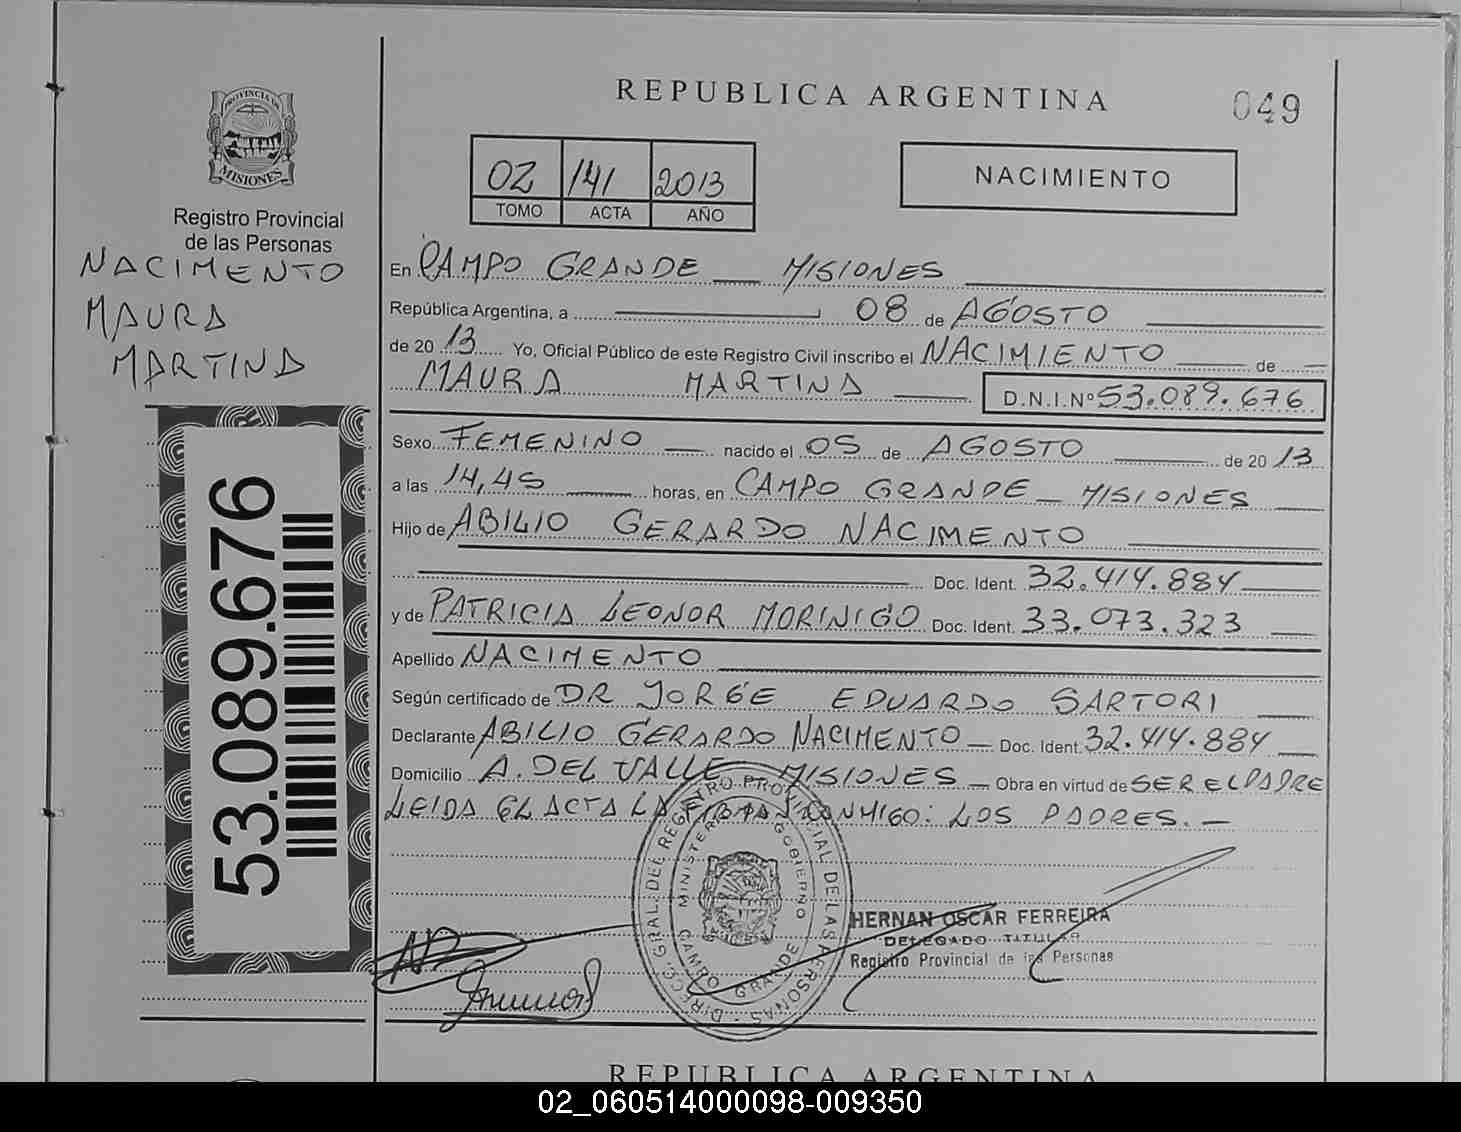 REPUBLICA ARGENTINA
049
PROVINCIA DE
MISIONES
Registro Provincial
de las Personas
NACIMENTO
MAURA
MARTINA
53.089.676
02 141 2013
TOMO ACTA AÑO
NACIMIENTO
En CAMPO GRANDE — MISIONES
República Argentina, a 08 de AGOSTO
de 20 13 Yo, Oficial Público de este Registro Civil inscribo el NACIMIENTO de
MAURA MARTINA D.N.I.Nº 53.089.676
Sexo FEMENINO nacido el 05 de AGOSTO de 20 13
a las 14,45 horas, en CAMPO GRANDE — MISIONES
Hijo de ABILIO GERARDO NACIMENTO
Doc. Ident. 32.414.884
y de PATRICIA LEONOR MORINIGO Doc. Ident. 33.073.323
Apellido NACIMENTO
Según certificado de DR JORGE EDUARDO SARTORI
Declarante ABILIO GERARDO NACIMENTO — Doc. Ident. 32.414.884
Domicilio A. DEL VALLE — MISIONES — Obra en virtud de SER EL PADRE
LEIDA EL ACTA LA FIRMAN CONMIGO: LOS PADRES. —
DIRECC. GRAL. DEL REGISTRO PROVINCIAL DE LAS PERSONAS
MINISTERIO GOBIERNO
CAMPO GRANDE
HERNAN OSCAR FERREIRA
DELEGADO TITULAR
Registro Provincial de las Personas
REPUBLICA ARGENTINA
02_060514000098-009350